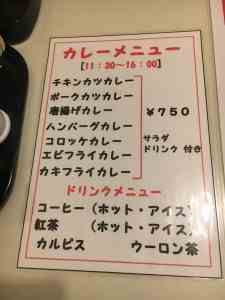 カレーメニュー
[11:30〜16:00]
チキンカツカレー
ポークカツカレー
唐揚げカレー
ハンバーグカレー
コロッケカレー
エビフライカレー
カキフライカレー
¥750
サラダ
ドリンク 付き
ドリンクメニュー
コーヒー(ホット・アイス)
紅茶 (ホット・アイス)
カルピス ウーロン茶